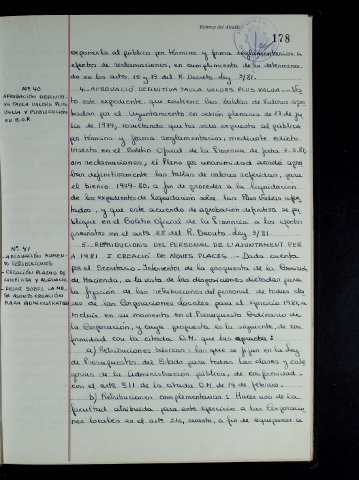 Rúbrica del Alcalde,
178
exponerla al público por término y forma reglamentarios a
efectos de reclamaciones, en cumplimiento de lo determina-
do en los arts. 15 y 17 del R. Decreto-Ley 3/81.
Nº 40
APROBACIÓN DEFINITI-
VA TAULA VALORS PLUS
VALUA Y PUBLICACION
EN B.O.P.
4.- APROVACIÓ DEFINITIVA TAULA VALORS PLUS VALUA.- Vis-
to este expediente, que contiene las tablas de valores apro-
badas por el Ayuntamiento en sesión plenaria de 27 de ju-
lio de 1979, resultando que ha sido expuesto al público
por término y forma reglamentarios, mediante edicto
inserto en el Boletín Oficial de la Provincia de fecha
sin reclamaciones, el Pleno por unanimidad acordó apro-
bar definitivamente las tablas de valores referidas, para
el bienio 1979-80, a fin de proceder a la liquidación
de los expedientes de liquidación sobre las Plus Valúa afec-
tados, y que este acuerdo de aprobación definitiva se pu-
blique en el Boletín Oficial de la Provincia a los efectos
previstos en el arts 25 del R. Decreto-Ley 3/81.
Nº 41
- APROVACIÓN AUMEN-
TO RETRIBUCIONES
- CREACIÓN PLAZAS DE
5.- RETRIBUCIONS DEL PERSONAL DE L'AJUNTAMENT PER
A 1981 I CREACIÓ DE NOVES PLACES.- Dada cuenta
por el Secretario-Interventor de la propuesta de la Comisión
de Hacienda, a la vista de las disposiciones dictadas para
la fijación de las retribuciones del personal de todas cla-
ses de las Corporaciones Locales para el ejercicio 1981, a
incluir en su momento en el Presupuesto Ordinario de
la Corporación, y cuya propuesta es la siguiente, de con-
formidad con la citada O.M. que las aprueba:
a) Retribuciones básicas: las que se fijan en la Ley
de Presupuestos del Estado para todas las clases y cate-
gorías de la Administración pública, de conformidad
con el arts 511 de la citada O.M. de 14 de febrero.
b) Retribuciones complementarias: Hacer uso de la
facultad atribuida para este ejercicio a las Corporacio-
nes locales en el arts a fin de equiparar a